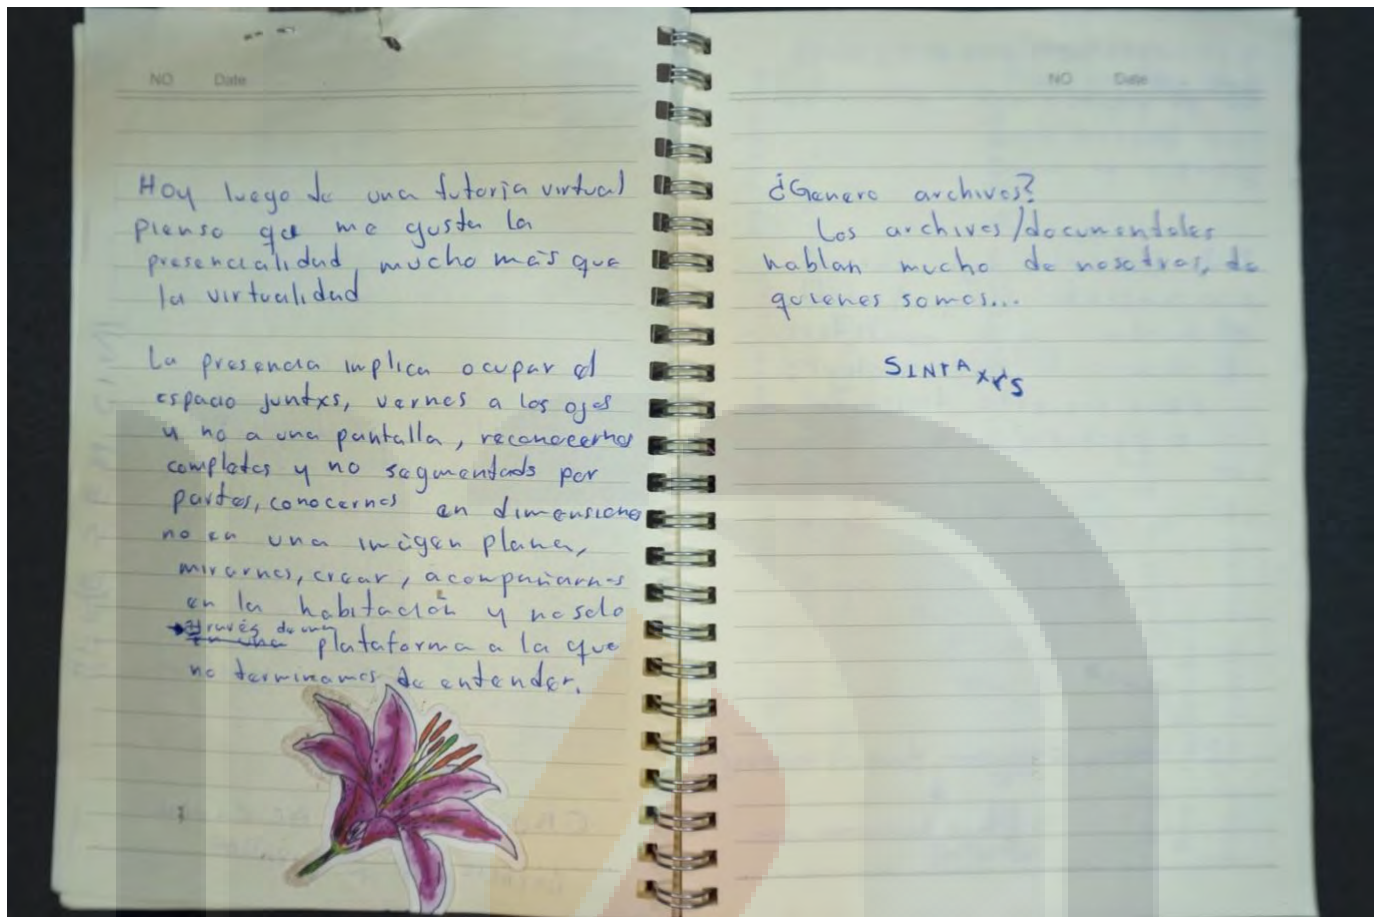 NO Date
Hoy luego de una tutoría virtual
pienso que me gusta la
presencialidad, mucho más que
la virtualidad
La presencia implica ocupar el
espacio juntxs, vernos a los ojos
y no a una pantalla, reconocernos
completos y no segmentados por
partes, conocernos en dimensiones
no en una imágen plana,
mirarnos, crear, acompañarnos
en la habitación y no solo
través de una
plataforma a la que
no terminamos de entender.
NO Date
¿Genero archivos?
Los archivos/documentales
hablan mucho de nosotros, de
quienes somos...